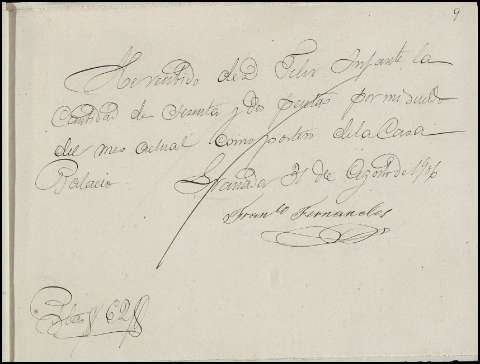 9
He recibido de D. Felix Infante la
Cantidad de Sesenta y dos pesetas por mi sueldo
del mes actual como portero de la Casa
Palacio. Granada 31 de Agosto de
Franco Fernandes
Ptas 62